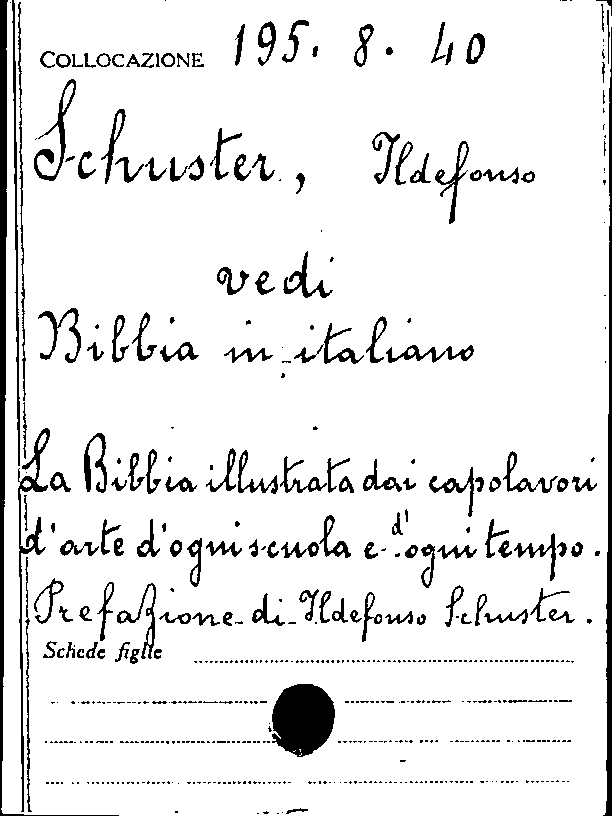 COLLOCAZIONE 195. 8. 40
Schuster, Ildefonso
vedi
Bibbia in italiano
La Bibbia illustrata dai capolavori
d'arte d'ogni scuola e d'ogni tempo.
Prefazione di Ildefonso Schuster.
Schede figlie